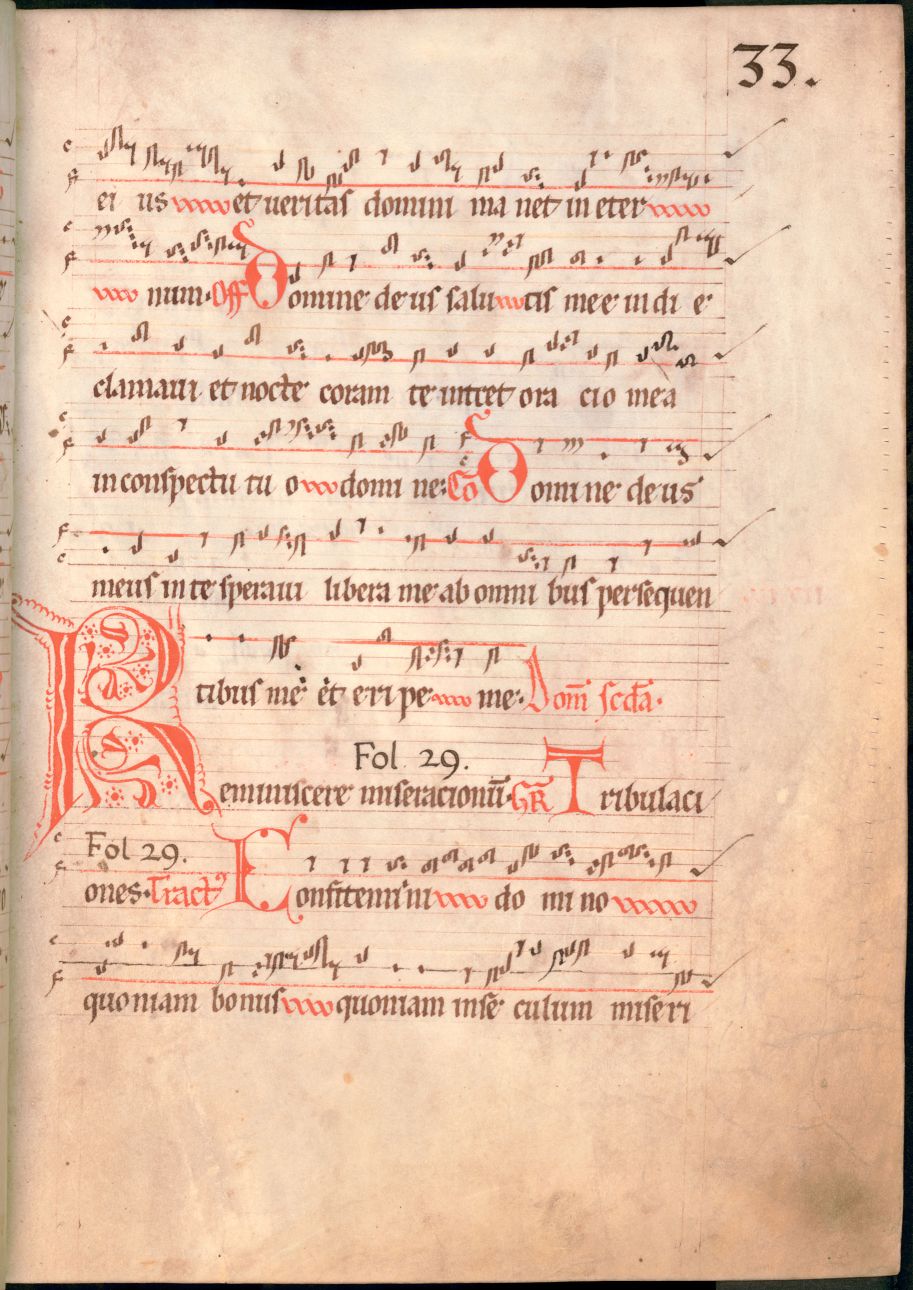 33.
ei us et ueritas domini ma net in eter
num. Off Domine deus salu tis mee in di e
clamaui et nocte coram te intret ora cio mea
in conspectu tu o domi ne: Co Domine deus
meus in te speraui libera me ab omni bus persequen
tibus me et eripe me. Dom scda.
Fol 29.
Reminiscere miseracionū. GR Tribulaci
Fol 29.
ones. Tract9 Confitemini do mi no
quoniam bonus quoniam in se culum miseri